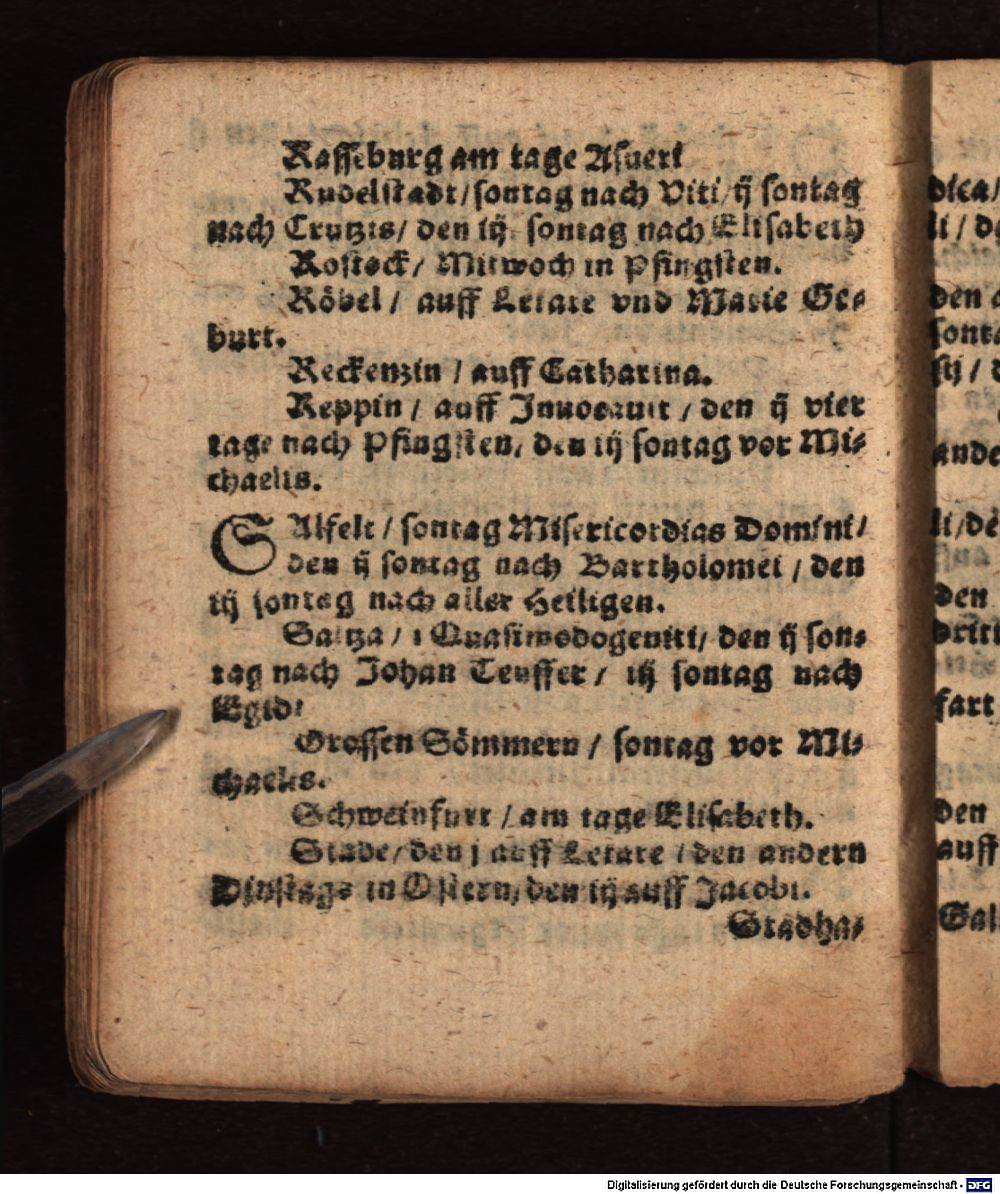 Rasseburg am tage Asueri
Rudelstadt/sontag nach Viti/ij sontag
nach Crutzis/ den iij sontag nach Elisabeth
Rostock/ Mitwoch in Pfingsten.
Röbel/ auff Letare vnd Marie Ge⸗
burt.
Reckenzin / auff Catharina.
Reppin / auff Inuocauit / den ij vier
tage nach Pfingsten, den iij sontag vor Mi⸗
chaelis.
SAlfelt / sontag Misericordias Domini/
den ij sontag nach Bartholomei / den
iij sontag nach aller Heiligen.
Saltza / i Quasimodogeniti/ den ij son⸗
tag nach Johan Teuffer / iij sontag nach
Egidi
Grossen Sömmern / sontag vor Mi⸗
chaelis.
Schweinfurt / am tage Elisabeth.
Stade/ den j auff Letare / den andern
Dinstags in Ostern, den iij auff Jacobi.
Stadha⸗
dica/
li / de
den
sont
iij /
ande
li/de
den
drit
fart
den
auff
Sal
Digitalisierung gefördert durch die Deutsche Forschungsgemeinschaft - DFG